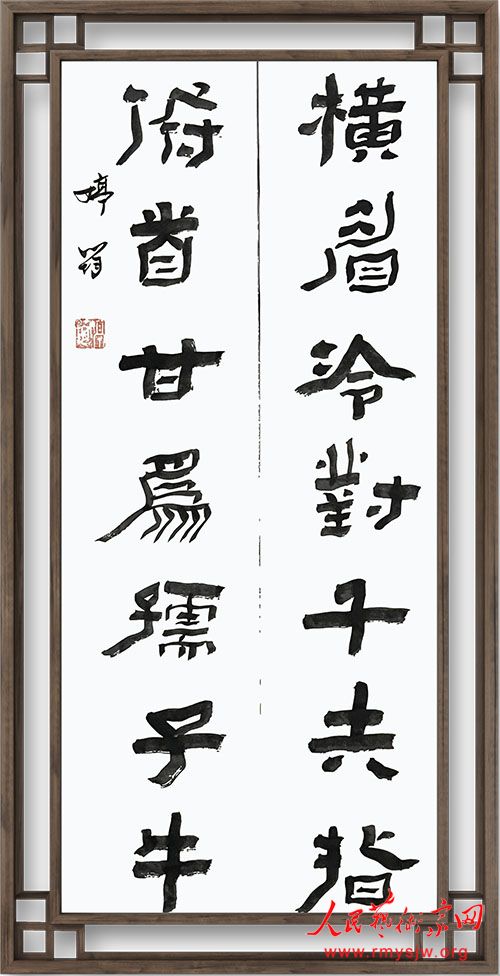 橫眉冷對千夫指
俯首甘爲孺子牛
婷
人民藝術家网
www.rmysjw.org